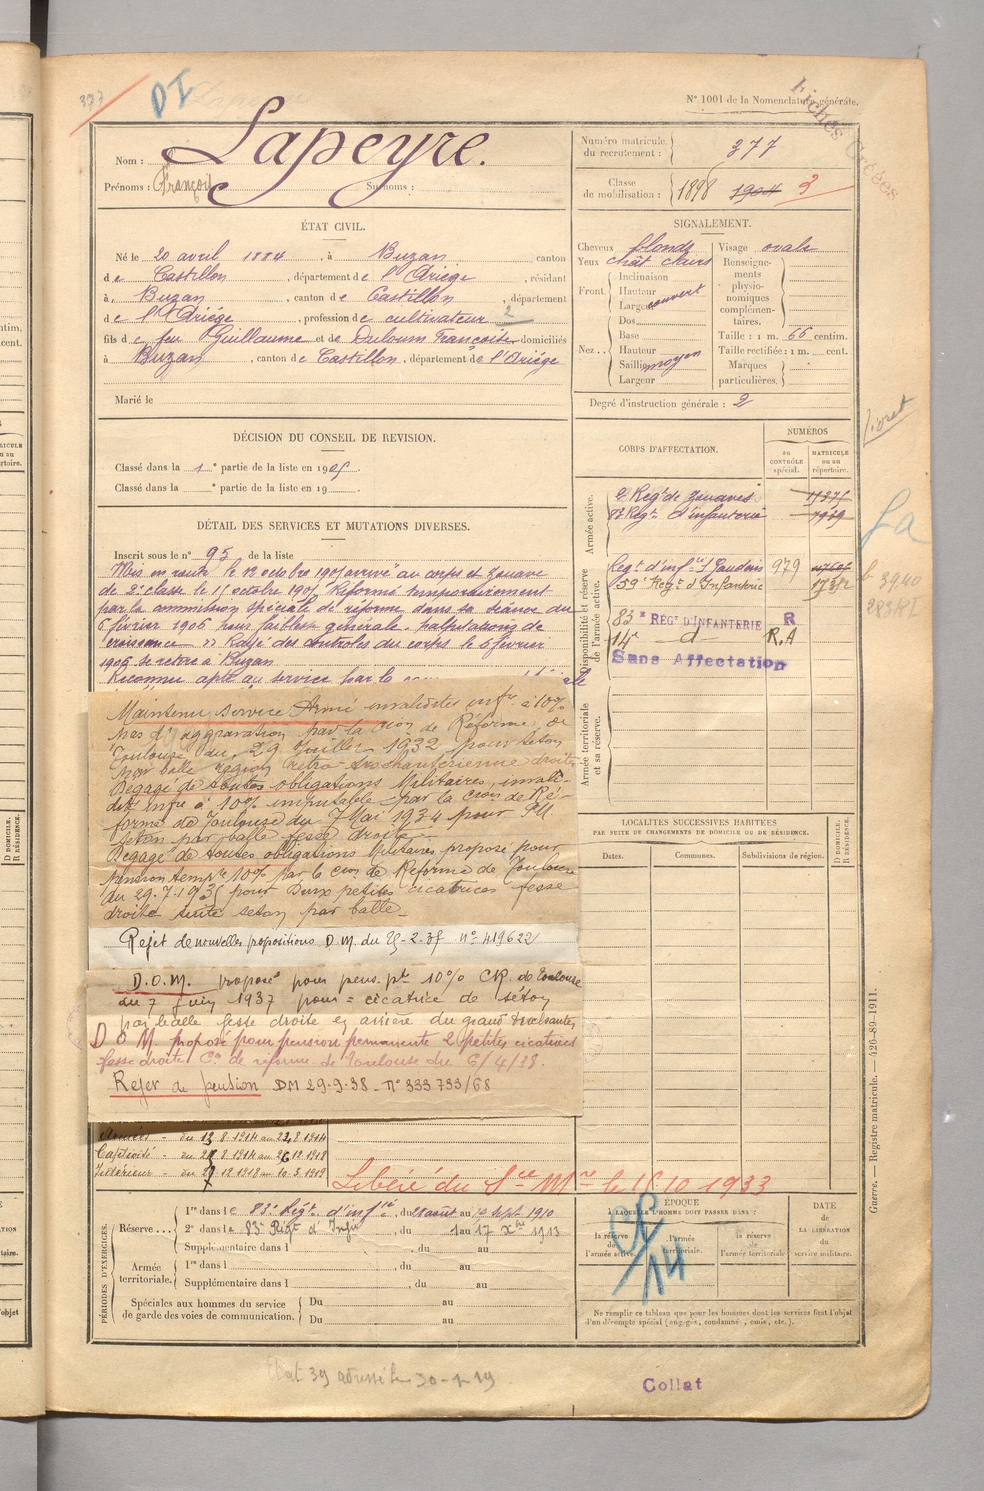 377
DI
N° 1001 de la Nomenclature générale.
Fiches Crèées
Nom : Lapeyre.
Prénoms : François Surnoms :
Numéro matricule du recrutement : 377
Classe de mobilisation : 1898 1904 2
ÉTAT CIVIL.
Né le 20 avril 1884, à Buzan canton
de Castillon, département de l'Ariège, résidant
à Buzan, canton de Castillon, département
de l'Ariége, profession de cultivateur 2
fils de feu Guillaume et de Duloum Françoise domiciliés
à Buzan, canton de Castillon, département de l'Ariége
Marié le
SIGNALEMENT.
Cheveux blonds
Yeux chât clairs
Front Inclinaison
Hauteur
Largeur couvert
Nez Dos
Base
Hauteur
Saillie moyen
Largeur
Visage ovale
Renseignements physionomiques complémentaires.
Taille : 1 m. 66 centim.
Taille rectifiée : 1 m. cent.
Marques particulières.
Degré d'instruction générale : 2
Livret
DÉCISION DU CONSEIL DE REVISION.
Classé dans la 1e partie de la liste en 1905.
Classé dans la e partie de la liste en 19 .
DÉTAIL DES SERVICES ET MUTATIONS DIVERSES.
Inscrit sous le n° 95 de la liste
Mis en route le 12 octobre 1905 arrivé au corps et Zouave
de 2e classe le 15 octobre 1905 Réformé temporairement
par la commission spéciale de réforme dans sa séance du
6 février 1906 pour faiblesse générale. palpitations de
croissance » Rayé des controles du corps le 6 février
1906 se retire à Buzan
Reconnu apte au service par la
Maintenu service Armé invalidités infre à 10%
pas d'aggravation par la Cion de Réforme de
Toulouse du 29 Juillet 1932 pour séton
par balle région rétro-trochantérienne droite
Dégagé de toutes obligations Militaires, invali-
dité infre à 10% imputable par la Cion de Ré-
forme de Toulouse du 7 Mai 1934 pour
séton par balle fesse droite
Dégagé de toutes obligations Militaires proposé pour
pension tempre 10% par la Con de Réforme de Toulouse
du 29.7.1935 pour Deux petites cicatrices fesse
droite suite séton par balle
Rejet de nouvelles propositions D.M. du 25-2-37 N° 419622
D.O.M. proposé pour pens. pte 10% CR. de Toulouse
du 7 Juin 1937 pour = cicatrice de séton
par balle fesse droite en arrière du grand trochanter
D O M. proposé pour pension permanente 2 petites cicatrices
fesse droite Con de réforme de Toulouse du 6/4/38.
Rejet de pension DM 29-9-38 - N° 333 733/68
Armées - du 13 8 1914 au 22 8 1914
Captivité - du 23 8 1914 au 26 12 1918
Intérieur - du 27 12 1918 au 10-3-1919
Libéré du Sce Mre le 15 10 1933
CORPS D'AFFECTATION.
NUMÉROS
au CONTRÔLE spécial.
MATRICULE ou au répertoire.
Armée active.
2e Régt de Zouaves 11375
83 Régt d'infanterie 7939
Disponibilité et réserve de l'armée active.
Régt d'infie St Gaudens 979
59e Régt d'Infanterie
83e REGT D'INFANTERIE R
14e d R.A
Sans Affectation
La
Armée territoriale et sa réserve.
LOCALITÉS SUCCESSIVES HABITÉES
PAR SUITE DE CHANGEMENTS DE DOMICILE OU DE RÉSIDENCE.
Dates.
Communes.
Subdivisions de région.
D DOMICILE.
R RÉSIDENCE.
PÉRIODES D'EXERCICES.
Réserve... 1re dans le 83e Régt d'infie, du 21 août au 10 Sept 1910
2e dans le 83e Régt d'Infie, du 1 au 17 Xbre 1913
Supplémentaire dans l , du au
Armée territoriale. 1re dans l , du au
Supplémentaire dans l , du au
Spéciales aux hommes du service de garde des voies de communication. Du au
Du au
ÉPOQUE
À LAQUELLE L'HOMME DOIT PASSER DANS :
la réserve de l'armée active.
l'armée territoriale.
la réserve de l'armée territoriale
DATE de LA LIBÉRATION du service militaire.
14
Ne remplir ce tableau que pour les hommes dont les services font l'objet
d'un décompte spécial (engagés, condamnés, omis, etc.).
Guerre. — Registre matricule. — 426-89-1911.
Etat 39 adressé le 30-1-19
Collat